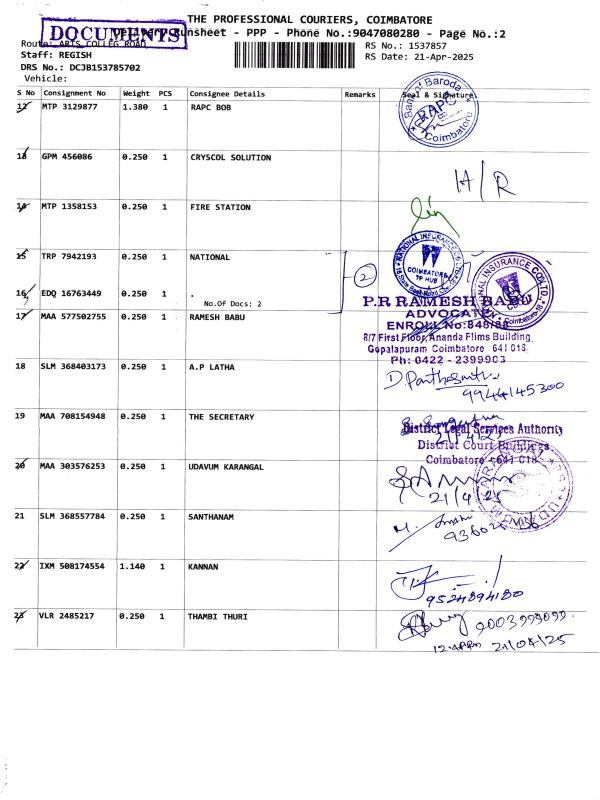 THE PROFESSIONAL COURIERS, COIMBATORE
DOCUMENTS
Delivery Runsheet - PPP - Phone No.:9047080280 - Page No.:2
Route: ARTS COLLEG ROAD
RS No.: 1537857
Staff: REGISH
RS Date: 21-Apr-2025
DRS No.: DCJB153785702
Vehicle:
S No Consignment No Weight PCS Consignee Details Remarks Seal & Signature
12 MTP 3129877 1.380 1 RAPC BOB
Bank of Baroda
RAPC
Coimbatore
13 GPM 456086 0.250 1 CRYSCOL SOLUTION
H/R
14 MTP 1358153 0.250 1 FIRE STATION
15 TRP 7942193 0.250 1 NATIONAL
COIMBATORE
TP HUB
2
16 EDQ 16763449 0.250 1 .
No.Of Docs: 2
INSURANCE CO. LTD.
Coimbatore
17 MAA 577502755 0.250 1 RAMESH BABU
P.R RAMESH BABU
ADVOCATE
ENROLL No:848/86
8/7 First Floor, Ananda Flims Building,
Gopalapuram Coimbatore 641 018.
Ph: 0422 - 2399903
18 SLM 368403173 0.250 1 A.P LATHA
9944145300
19 MAA 708154948 0.250 1 THE SECRETARY
21/4/25
District Legal Services Authority
District Court Buildings
Coimbatore - 641 018
20 MAA 303576253 0.250 1 UDAVUM KARANGAL
21/4/25
21 SLM 368557784 0.250 1 SANTHANAM
22 IXM 508174554 1.140 1 KANNAN
9524894180
23 VLR 2485217 0.250 1 THAMBI THURI
9003999099
21/04/25